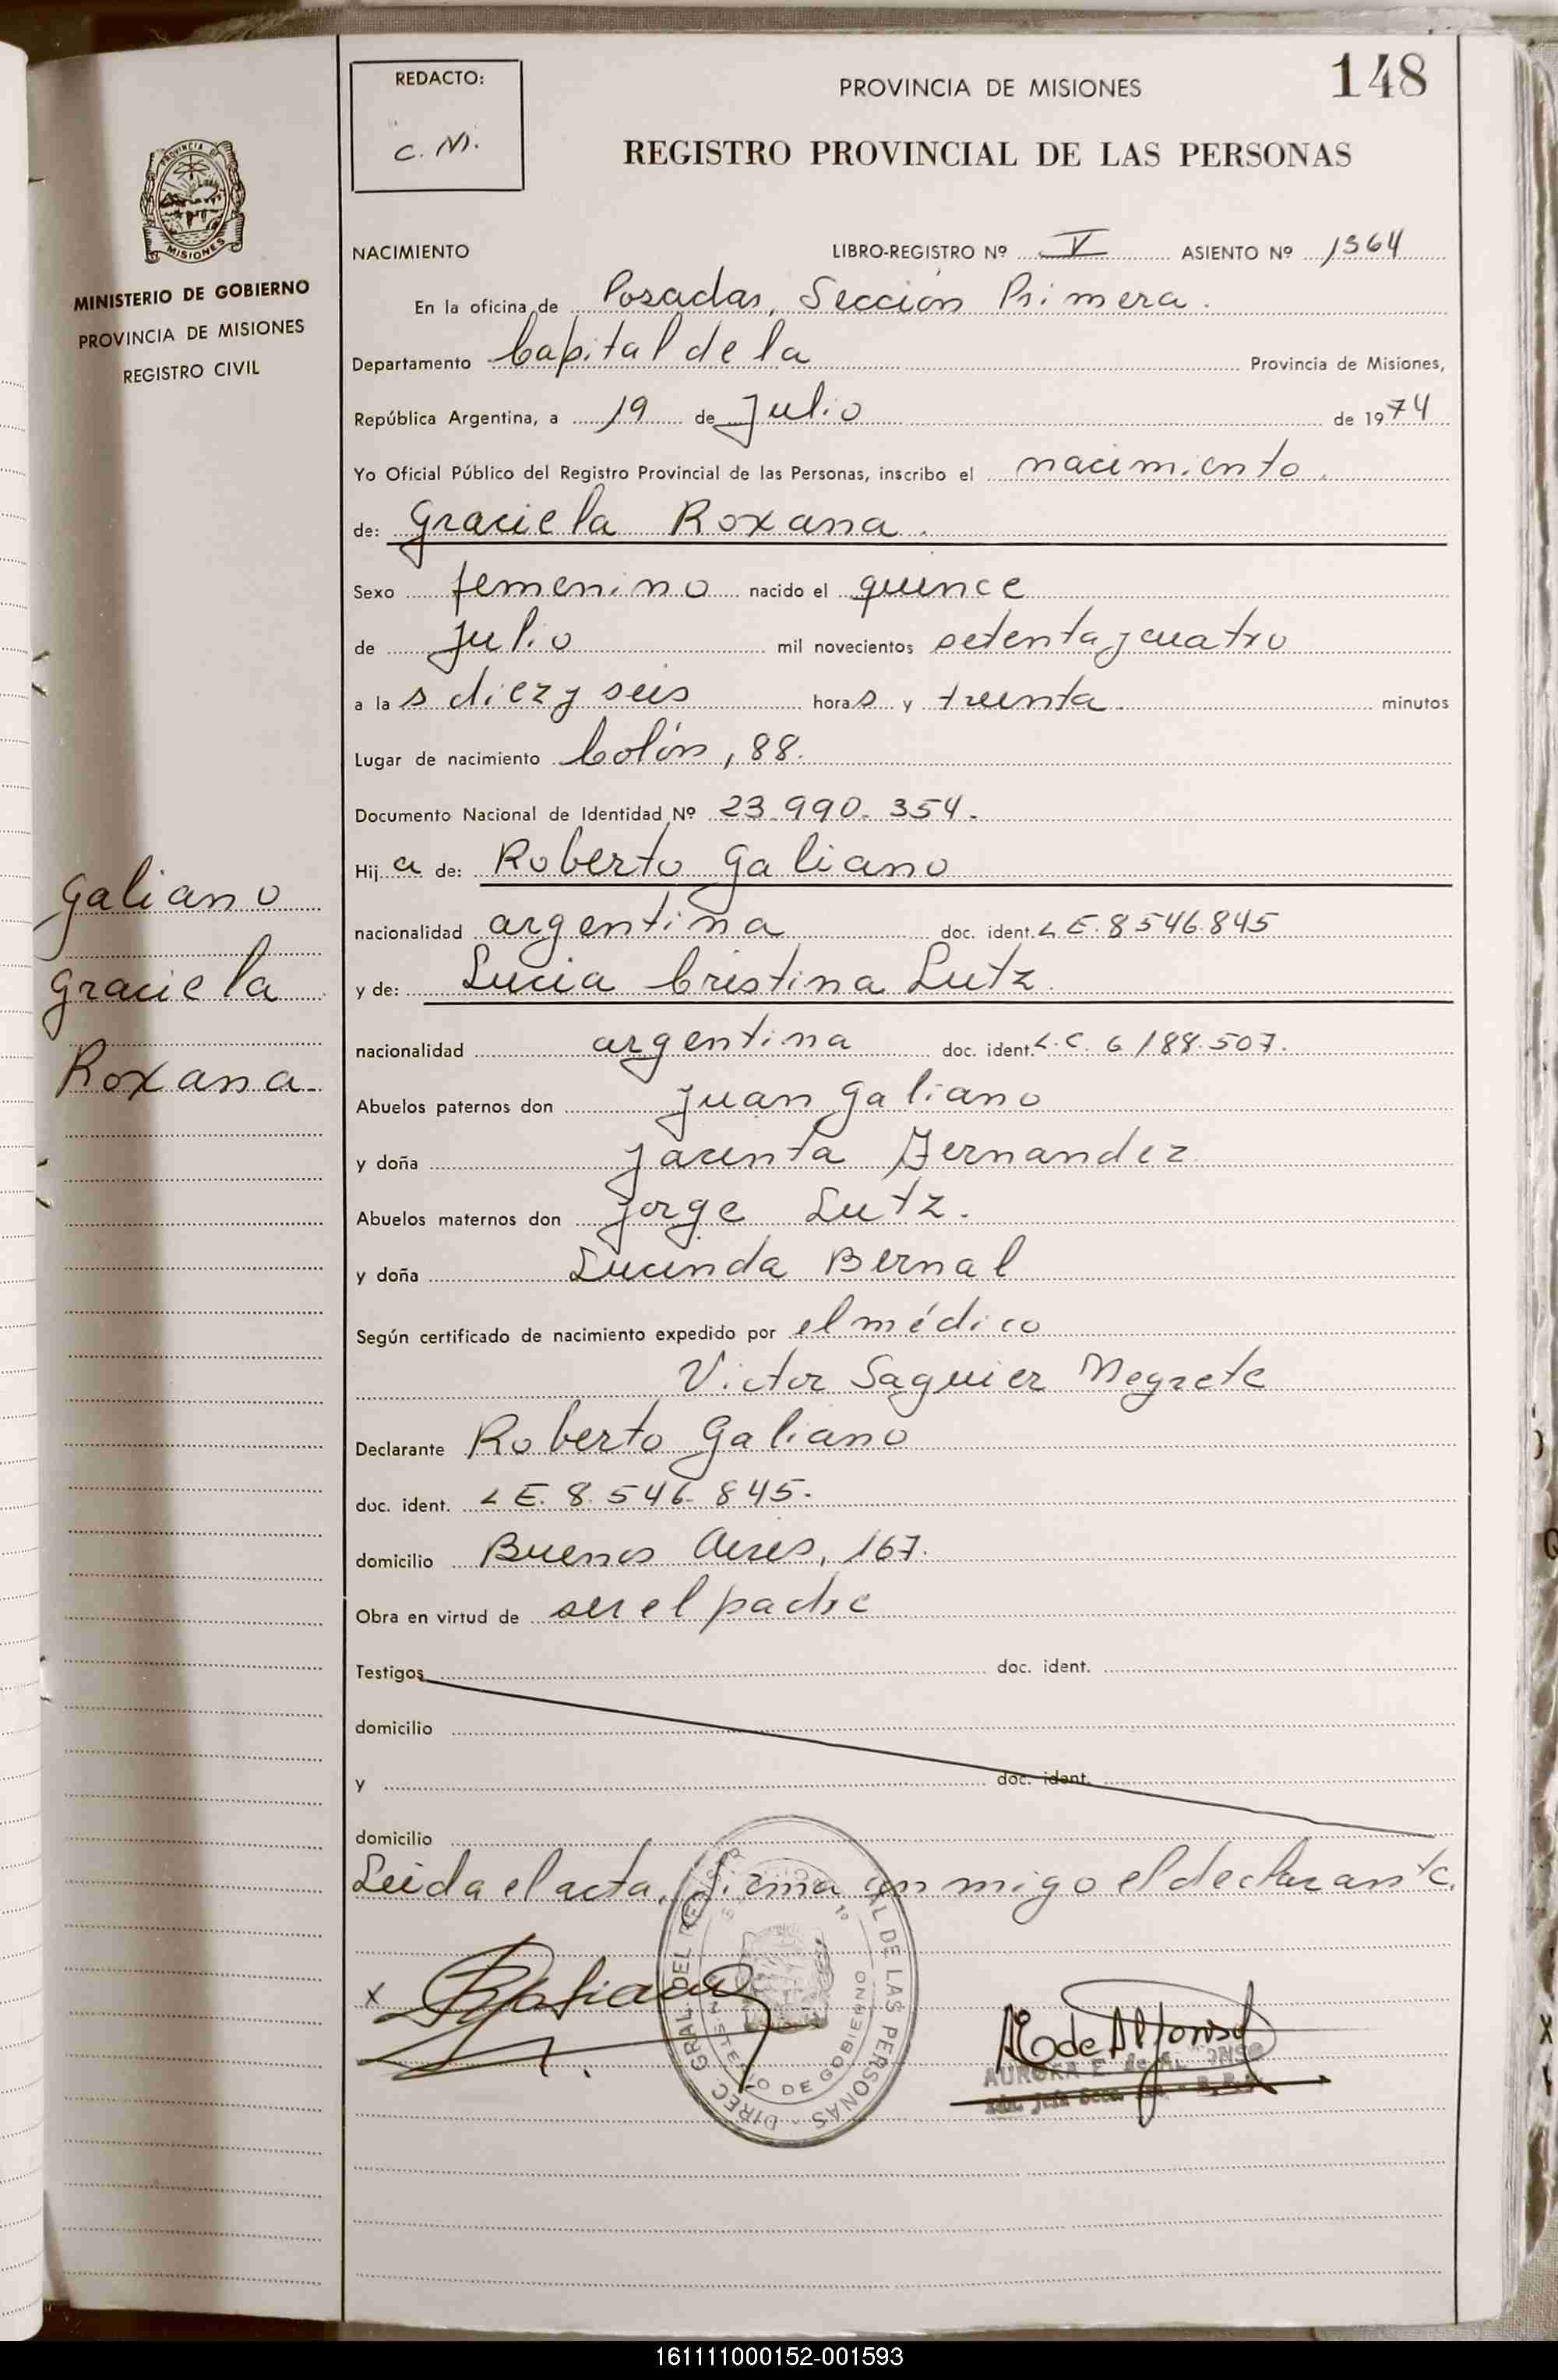 148
REDACTO:
C. M.
PROVINCIA DE MISIONES
REGISTRO PROVINCIAL DE LAS PERSONAS
PROVINCIA DE
MISIONES
MINISTERIO DE GOBIERNO
PROVINCIA DE MISIONES
REGISTRO CIVIL
Galiano
Graciela
Roxana
NACIMIENTO LIBRO-REGISTRO Nº V ASIENTO Nº 1364
En la oficina de Posadas, Sección Primera.
Departamento Capital de la Provincia de Misiones,
República Argentina, a 19 de Julio de 1974
Yo Oficial Público del Registro Provincial de las Personas, inscribo el nacimiento
de: Graciela Roxana.
Sexo femenino nacido el quince
de Julio mil novecientos setenta y cuatro
a las diez y seis horas y treinta minutos
Lugar de nacimiento Colón, 88.
Documento Nacional de Identidad Nº 23.990.354.
Hija de: Roberto Galiano
nacionalidad argentina doc. ident. L E. 8.546.845
y de: Lucia Cristina Lutz
nacionalidad argentina doc. ident. L.C. 6.188.507.
Abuelos paternos don Juan Galiano
y doña Jacinta Fernandez
Abuelos maternos don Jorge Lutz.
y doña Lucinda Bernal
Según certificado de nacimiento expedido por el médico
Victor Saguier Negrete
Declarante Roberto Galiano
doc. ident. L E. 8.546.845.
domicilio Buenos Aires, 167.
Obra en virtud de ser el padre
Testigos doc. ident.
domicilio
y doc. ident.
domicilio
Leida el acta, firma conmigo el declarante.
x RGaliano
DIREC. GRAL. DEL REG. PROVINCIAL DE LAS PERSONAS
MINISTERIO DE GOBIERNO
AE de Alfonso
AURORA E. de ALFONSO
161111000152-001593